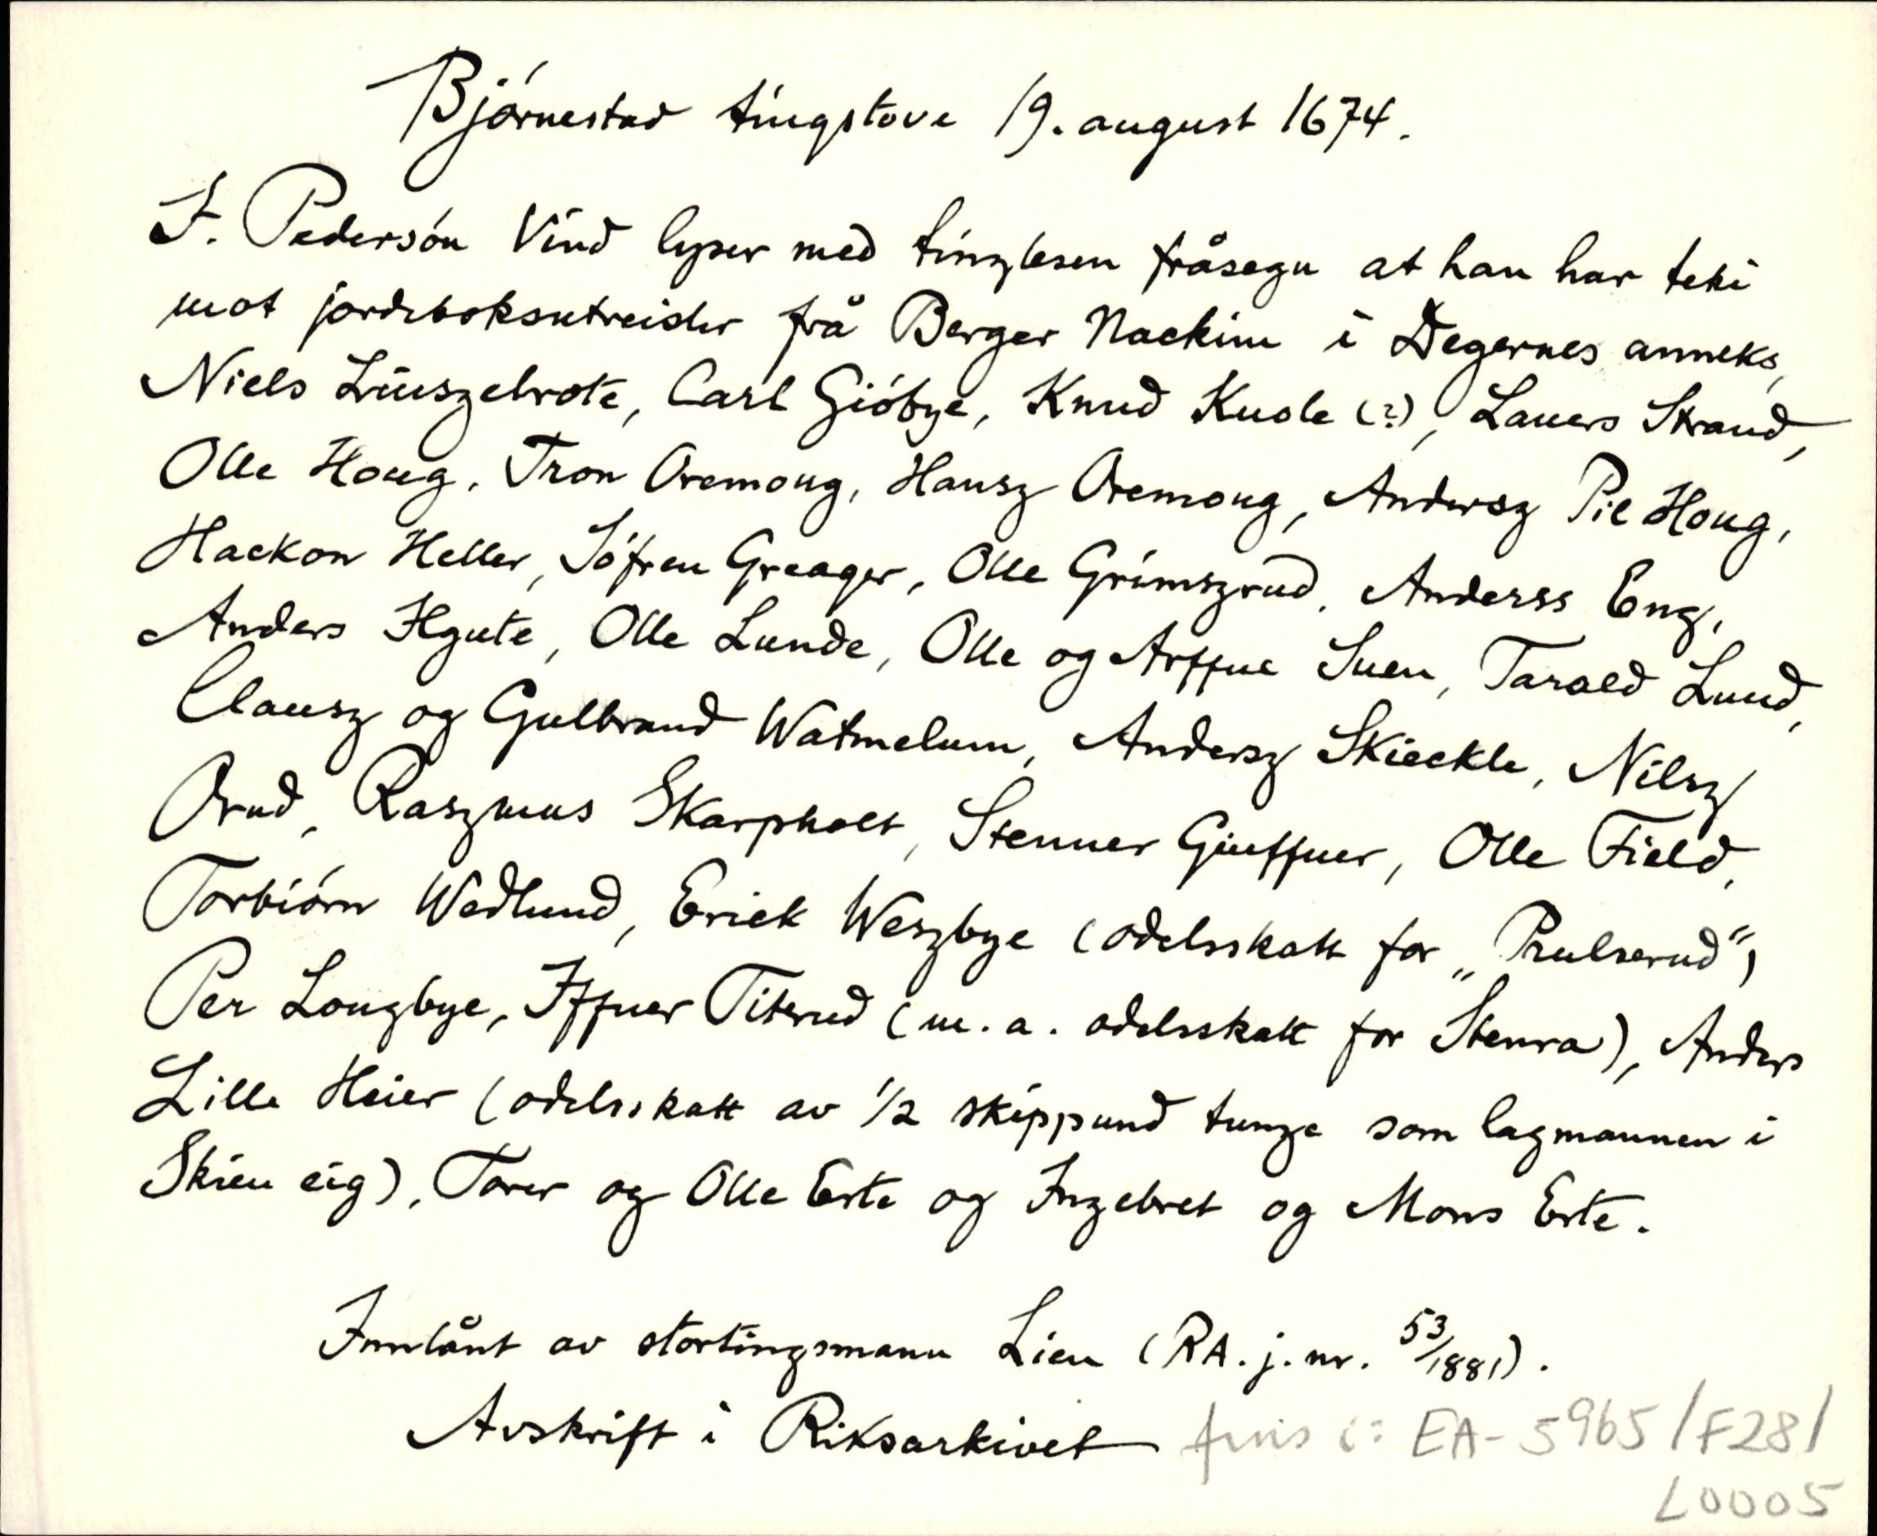 Bjórnestad tingstove 19. august 1674.
I. Pedersón Vind lyser med tinglesen fråsegn at han har teki
mot jordeboksutreidslr frå Berger Nackim i Degernes anneks,
Niels Lüuszebrote, Carl Gióbye, Knud Kuole (?), Lauers Strand,
Olle Houg, Tron Oremoug, Hansz Oremoug, Andersz Pil Houg,
Hackon Heller, Sófren Greager, Olle Grimszrud, Anderss Eng,
Anders Hgute, Olle Lunde, Olle og Arffue Suen, Tarald Lund,
Clausz og Gulbrand Watmelum, Andersz Skieckle, Nilsz
Orud, Raszmus Skarpholt, Stenner Giuffuer, Olle Field,
Torbiórn Wedlund, Erick Weszbye (odelsskatt for „Prulserud“)
Per Lougbye, Iffuer Titerud (m. a. odelsskatt for Stenra), Anders
Lille Heier (odelsskatt av 1/2 skippund tunge som lagmannen i
Skien eig), Torer og Olle Erte og Ingebret og Mons Erte.
Innlånt av stortingsmann Lien (RA. j. nr. 53/1881).
Avskrift i Riksarkivet fins i: EA-5965/F28/
L0005